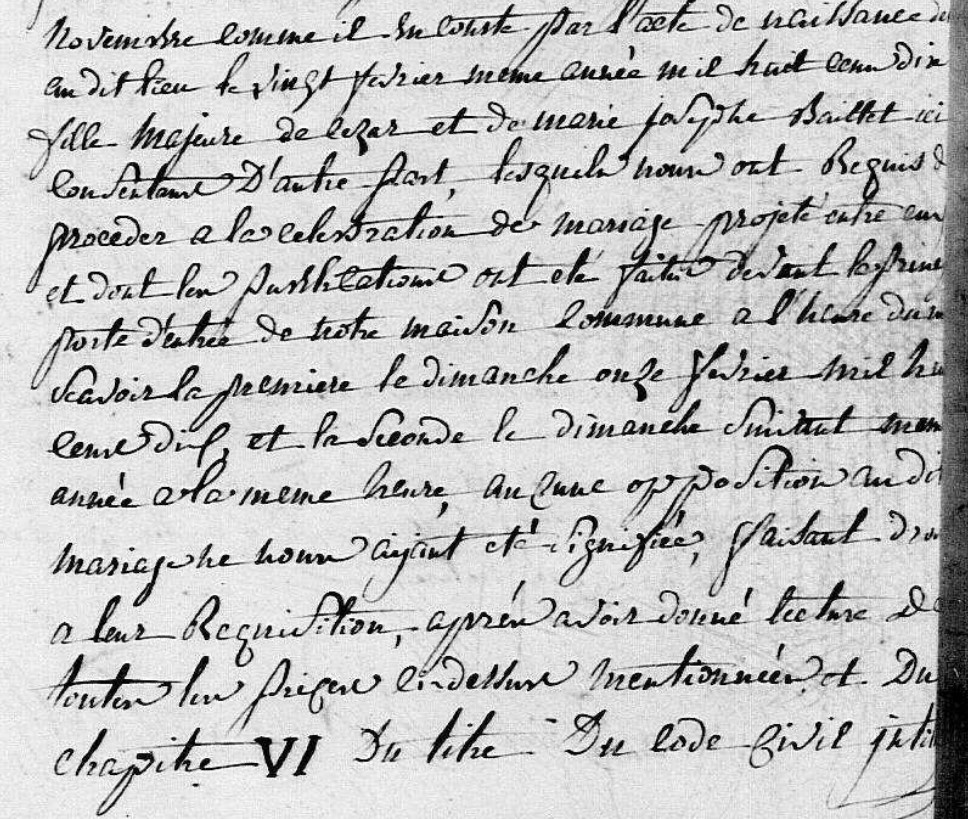 novembre comme il en conste par l'acte de naissance de
au dit lieu le vingt fevrier meme année mil huit cent dix
fille majeure de lezar et de marie josephe Baillet ici
consentant D'autre part, lesquels nous ont Requis d
proceder a la celebration de mariage projeté entre eux
et dont les publications ont eté faites devant la prin
porte d'entrée de notre maison commune a l'heure du m
scavoir la premiere le dimanche onze fevrier mil hu
cent dix, et la seconde le dimanche suivant mem
année a la meme heure, aucune opposition au dit
mariage ne nous aiant eté signifiée, faisant droi
a leur Requisition, aprés avoir donné lecture de
toutes les pieces cidessus mentionnées et Du
chapitre VI Du titre Du code Civil intit